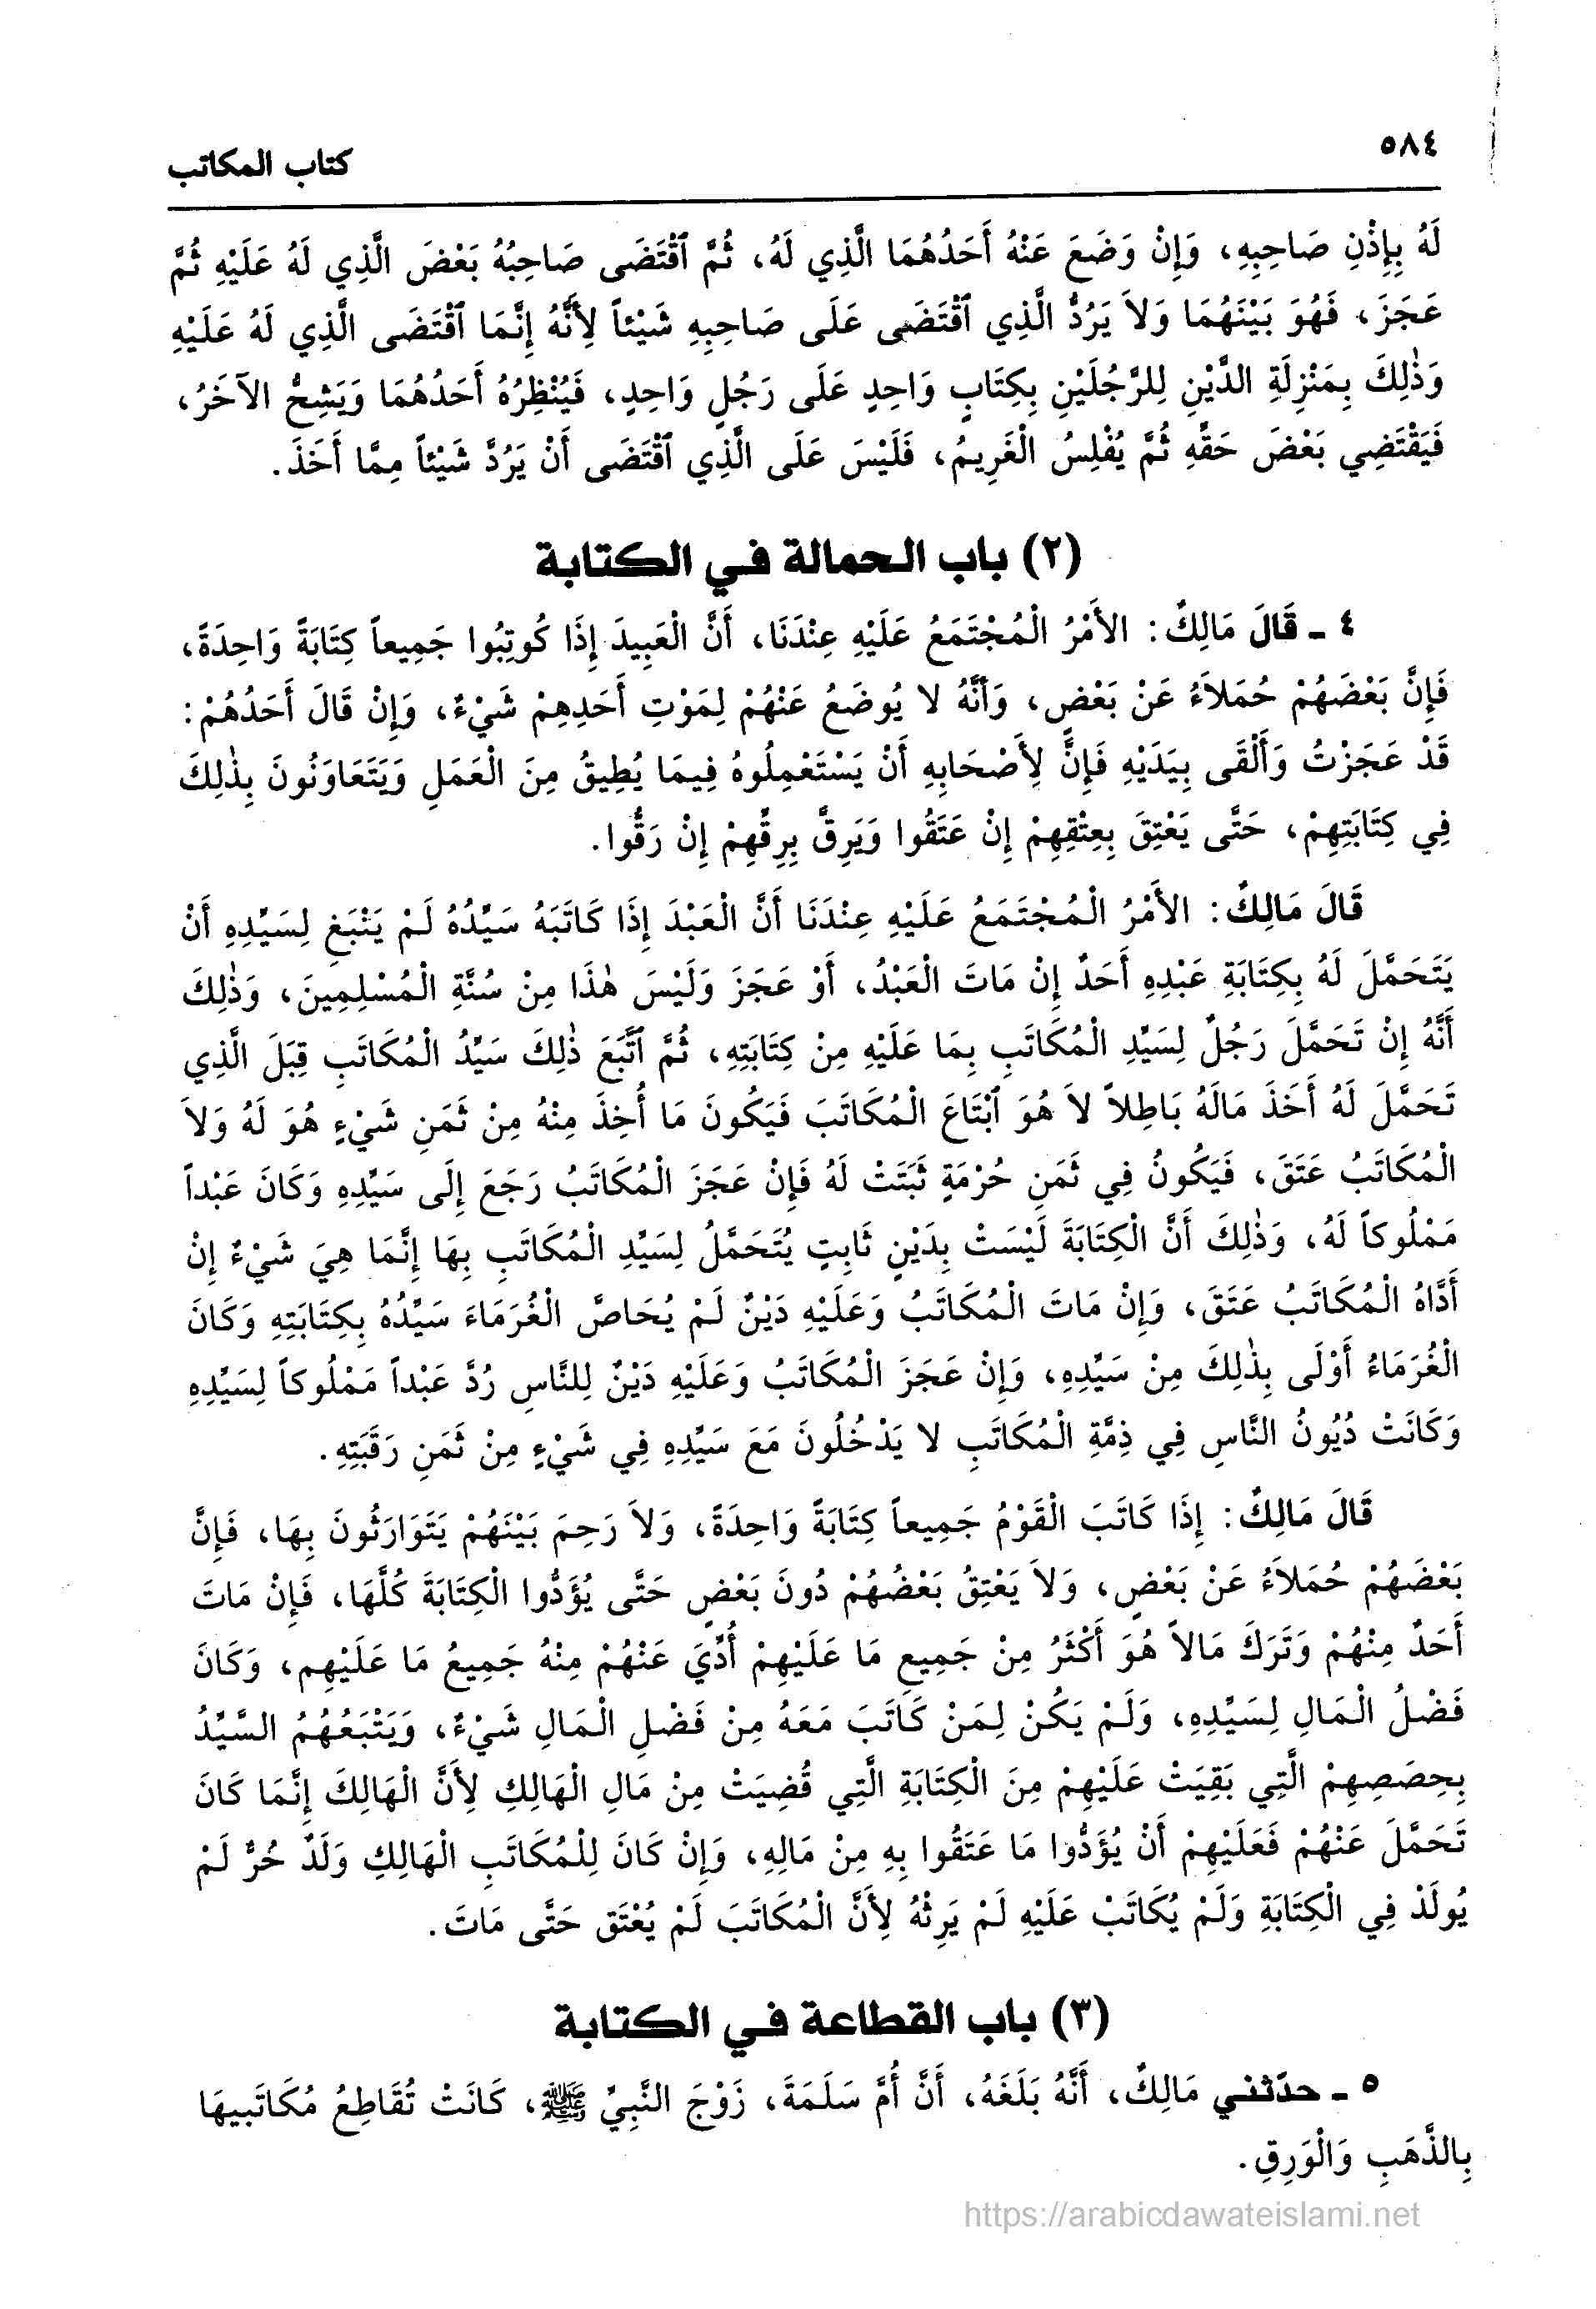 ٥٨٤
كتاب المكاتب
لَهُ بِإِذْنِ صَاحِبِهِ، وَإِنْ وَضَعَ عَنْهُ أَحَدُهُمَا الَّذِي لَهُ، ثُمَّ ٱقْتَضَى صَاحِبُهُ بَعْضَ الَّذِي لَهُ عَلَيْهِ ثُمَّ
عَجَزَ، فَهُوَ بَيْنَهُمَا وَلاَ يَرُدُّ الَّذِي ٱقْتَضَى عَلَى صَاحِبِهِ شَيْئاً لِأَنَّهُ إِنَّمَا ٱقْتَضَى الَّذِي لَهُ عَلَيْهِ
وَذٰلِكَ بِمَنْزِلَةِ الدَّيْنِ لِلرَّجُلَيْنِ بِكِتَابٍ وَاحِدٍ عَلَى رَجُلٍ وَاحِدٍ، فَيُنْظِرُهُ أَحَدُهُمَا وَيَشِحُّ الآخَرُ،
فَيَقْتَضِي بَعْضَ حَقِّهِ ثُمَّ يُفْلِسُ الْغَرِيمُ، فَلَيْسَ عَلَى الَّذِي ٱقْتَضَى أَنْ يَرُدَّ شَيْئاً مِمَّا أَخَذَ.
(٢) باب الحمالة في الكتابة
٤ ـ قَالَ مَالِكٌ: الأَمْرُ الْمُجْتَمَعُ عَلَيْهِ عِنْدَنَا، أَنَّ الْعَبِيدَ إِذَا كُوتِبُوا جَمِيعاً كِتَابَةً وَاحِدَةً،
فَإِنَّ بَعْضَهُمْ حُمَلاَءُ عَنْ بَعْضٍ، وَأَنَّهُ لا يُوضَعُ عَنْهُمْ لِمَوْتِ أَحَدِهِمْ شَيْءٌ، وَإِنْ قَالَ أَحَدُهُمْ:
قَدْ عَجَزْتُ وَأَلْقَى بِيَدَيْهِ فَإِنَّ لِأَصْحَابِهِ أَنْ يَسْتَعْمِلُوهُ فِيمَا يُطِيقُ مِنَ الْعَمَلِ وَيَتَعَاوَنُونَ بِذٰلِكَ
فِي كِتَابَتِهِمْ، حَتَّى يَعْتِقَ بِعِتْقِهِمْ إِنْ عَتَقُوا وَيَرِقَّ بِرِقِّهِمْ إِنْ رَقُّوا.
قَالَ مَالِكٌ: الأَمْرُ الْمُجْتَمَعُ عَلَيْهِ عِنْدَنَا أَنَّ الْعَبْدَ إِذَا كَاتَبَهُ سَيِّدُهُ لَمْ يَنْبَغِ لِسَيِّدِهِ أَنْ
يَتَحَمَّلَ لَهُ بِكِتَابَةِ عَبْدِهِ أَحَدٌ إِنْ مَاتَ الْعَبْدُ، أَوْ عَجَزَ وَلَيْسَ هٰذَا مِنْ سُنَّةِ الْمُسْلِمِينَ، وَذٰلِكَ
أَنَّهُ إِنْ تَحَمَّلَ رَجُلٌ لِسَيِّدِ الْمُكَاتَبِ بِمَا عَلَيْهِ مِنْ كِتَابَتِهِ، ثُمَّ ٱتَّبَعَ ذٰلِكَ سَيِّدُ الْمُكَاتَبِ قِبَلَ الَّذِي
تَحَمَّلَ لَهُ أَخَذَ مَالَهُ بَاطِلاً لاَ هُوَ ٱبْتَاعَ الْمُكَاتَبَ فَيَكُونَ مَا أُخِذَ مِنْهُ مِنْ ثَمَنِ شَيْءٍ هُوَ لَهُ وَلاَ
الْمُكَاتَبُ عَتَقَ، فَيَكُونُ فِي ثَمَنِ حُرْمَةٍ ثَبَتَتْ لَهُ فَإِنْ عَجَزَ الْمُكَاتَبُ رَجَعَ إِلَى سَيِّدِهِ وَكَانَ عَبْداً
مَمْلُوكاً لَهُ، وَذٰلِكَ أَنَّ الْكِتَابَةَ لَيْسَتْ بِدَيْنٍ ثَابِتٍ يُتَحَمَّلُ لِسَيِّدِ الْمُكَاتَبِ بِهَا إِنَّمَا هِيَ شَيْءٌ إِنْ
أَدَّاهُ الْمُكَاتَبُ عَتَقَ، وَإِنْ مَاتَ الْمُكَاتَبُ وَعَلَيْهِ دَيْنٌ لَمْ يُحَاصَّ الْغُرَمَاءَ سَيِّدُهُ بِكِتَابَتِهِ وَكَانَ
الْغُرَمَاءُ أَوْلَى بِذٰلِكَ مِنْ سَيِّدِهِ، وَإِنْ عَجَزَ الْمُكَاتَبُ وَعَلَيْهِ دَيْنٌ لِلنَّاسِ رُدَّ عَبْداً مَمْلُوكاً لِسَيِّدِهِ
وَكَانَتْ دُيُونُ النَّاسِ فِي ذِمَّةِ الْمُكَاتَبِ لا يَدْخُلُونَ مَعَ سَيِّدِهِ فِي شَيْءٍ مِنْ ثَمَنِ رَقَبَتِهِ.
قَالَ مَالِكٌ: إِذَا كَاتَبَ الْقَوْمُ جَمِيعاً كِتَابَةً وَاحِدَةً، وَلاَ رَحِمَ بَيْنَهُمْ يَتَوَارَثُونَ بِهَا، فَإِنَّ
بَعْضَهُمْ حُمَلاَءُ عَنْ بَعْضٍ، وَلاَ يَعْتِقُ بَعْضُهُمْ دُونَ بَعْضٍ حَتَّى يُؤَدُّوا الْكِتَابَةَ كُلَّهَا، فَإِنْ مَاتَ
أَحَدٌ مِنْهُمْ وَتَرَكَ مَالاً هُوَ أَكْثَرُ مِنْ جَمِيعِ مَا عَلَيْهِمْ أُدِّيَ عَنْهُمْ مِنْهُ جَمِيعُ مَا عَلَيْهِم، وَكَانَ
فَضْلُ الْمَالِ لِسَيِّدِهِ، وَلَمْ يَكُنْ لِمَنْ كَاتَبَ مَعَهُ مِنْ فَضْلِ الْمَالِ شَيْءٌ، وَيَتْبَعُهُمُ السَّيِّدُ
بِحِصَصِهِمْ الَّتِي بَقِيَتْ عَلَيْهِمْ مِنَ الْكِتَابَةِ الَّتِي قُضِيَتْ مِنْ مَالِ الْهَالِكِ لِأَنَّ الْهَالِكَ إِنَّمَا كَانَ
تَحَمَّلَ عَنْهُمْ فَعَلَيْهِمْ أَنْ يُؤَدُّوا مَا عَتَقُوا بِهِ مِنْ مَالِهِ، وَإِنْ كَانَ لِلْمُكَاتَبِ الْهَالِكِ وَلَدٌ حُرٌّ لَمْ
يُولَدْ فِي الْكِتَابَةِ وَلَمْ يُكَاتَبْ عَلَيْهِ لَمْ يَرِثْهُ لِأَنَّ الْمُكَاتَبَ لَمْ يُعْتَق حَتَّى مَاتَ.
(٣) باب القطاعة في الكتابة
٥ ـ حدّثني مَالِكٌ، أَنَّهُ بَلَغَهُ، أَنَّ أُمَّ سَلَمَةَ، زَوْجَ النَّبِيِّ ﷺ، كَانَتْ تُقَاطِعُ مُكَاتَبِيهَا
بِالذَّهَبِ وَالْوَرِقِ.
https://arabicdawateislami.net